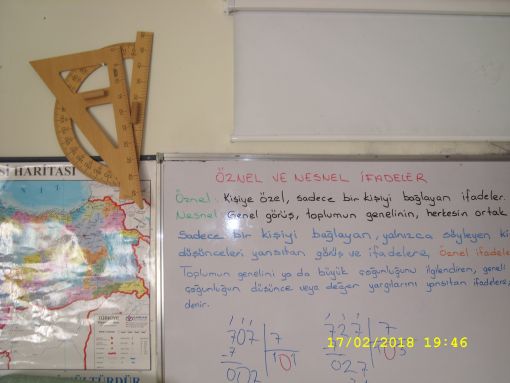 Sİ HARİTASI
ÖZNEL VE NESNEL İFADELER
Öznel: Kişiye özel, sadece bir kişiyi bağlayan ifadeler.
Nesnel: Genel görüş, toplumun genelinin, herkesin ortak
Sadece bir kişiyi bağlayan, yalnızca söyleyen ki
düşünceleri yansıtan görüş ve ifadelere, Öznel ifadele
Toplumun genelini ya da büyük çoğunluğunu ilgilendiren, geneli
çoğunluğun düşünce veya değer yargılarını yansıtan ifadelere,
denir.
707 7
-7 101
002
727 7
027
17/02/2018 19:46
TÜRKİYE